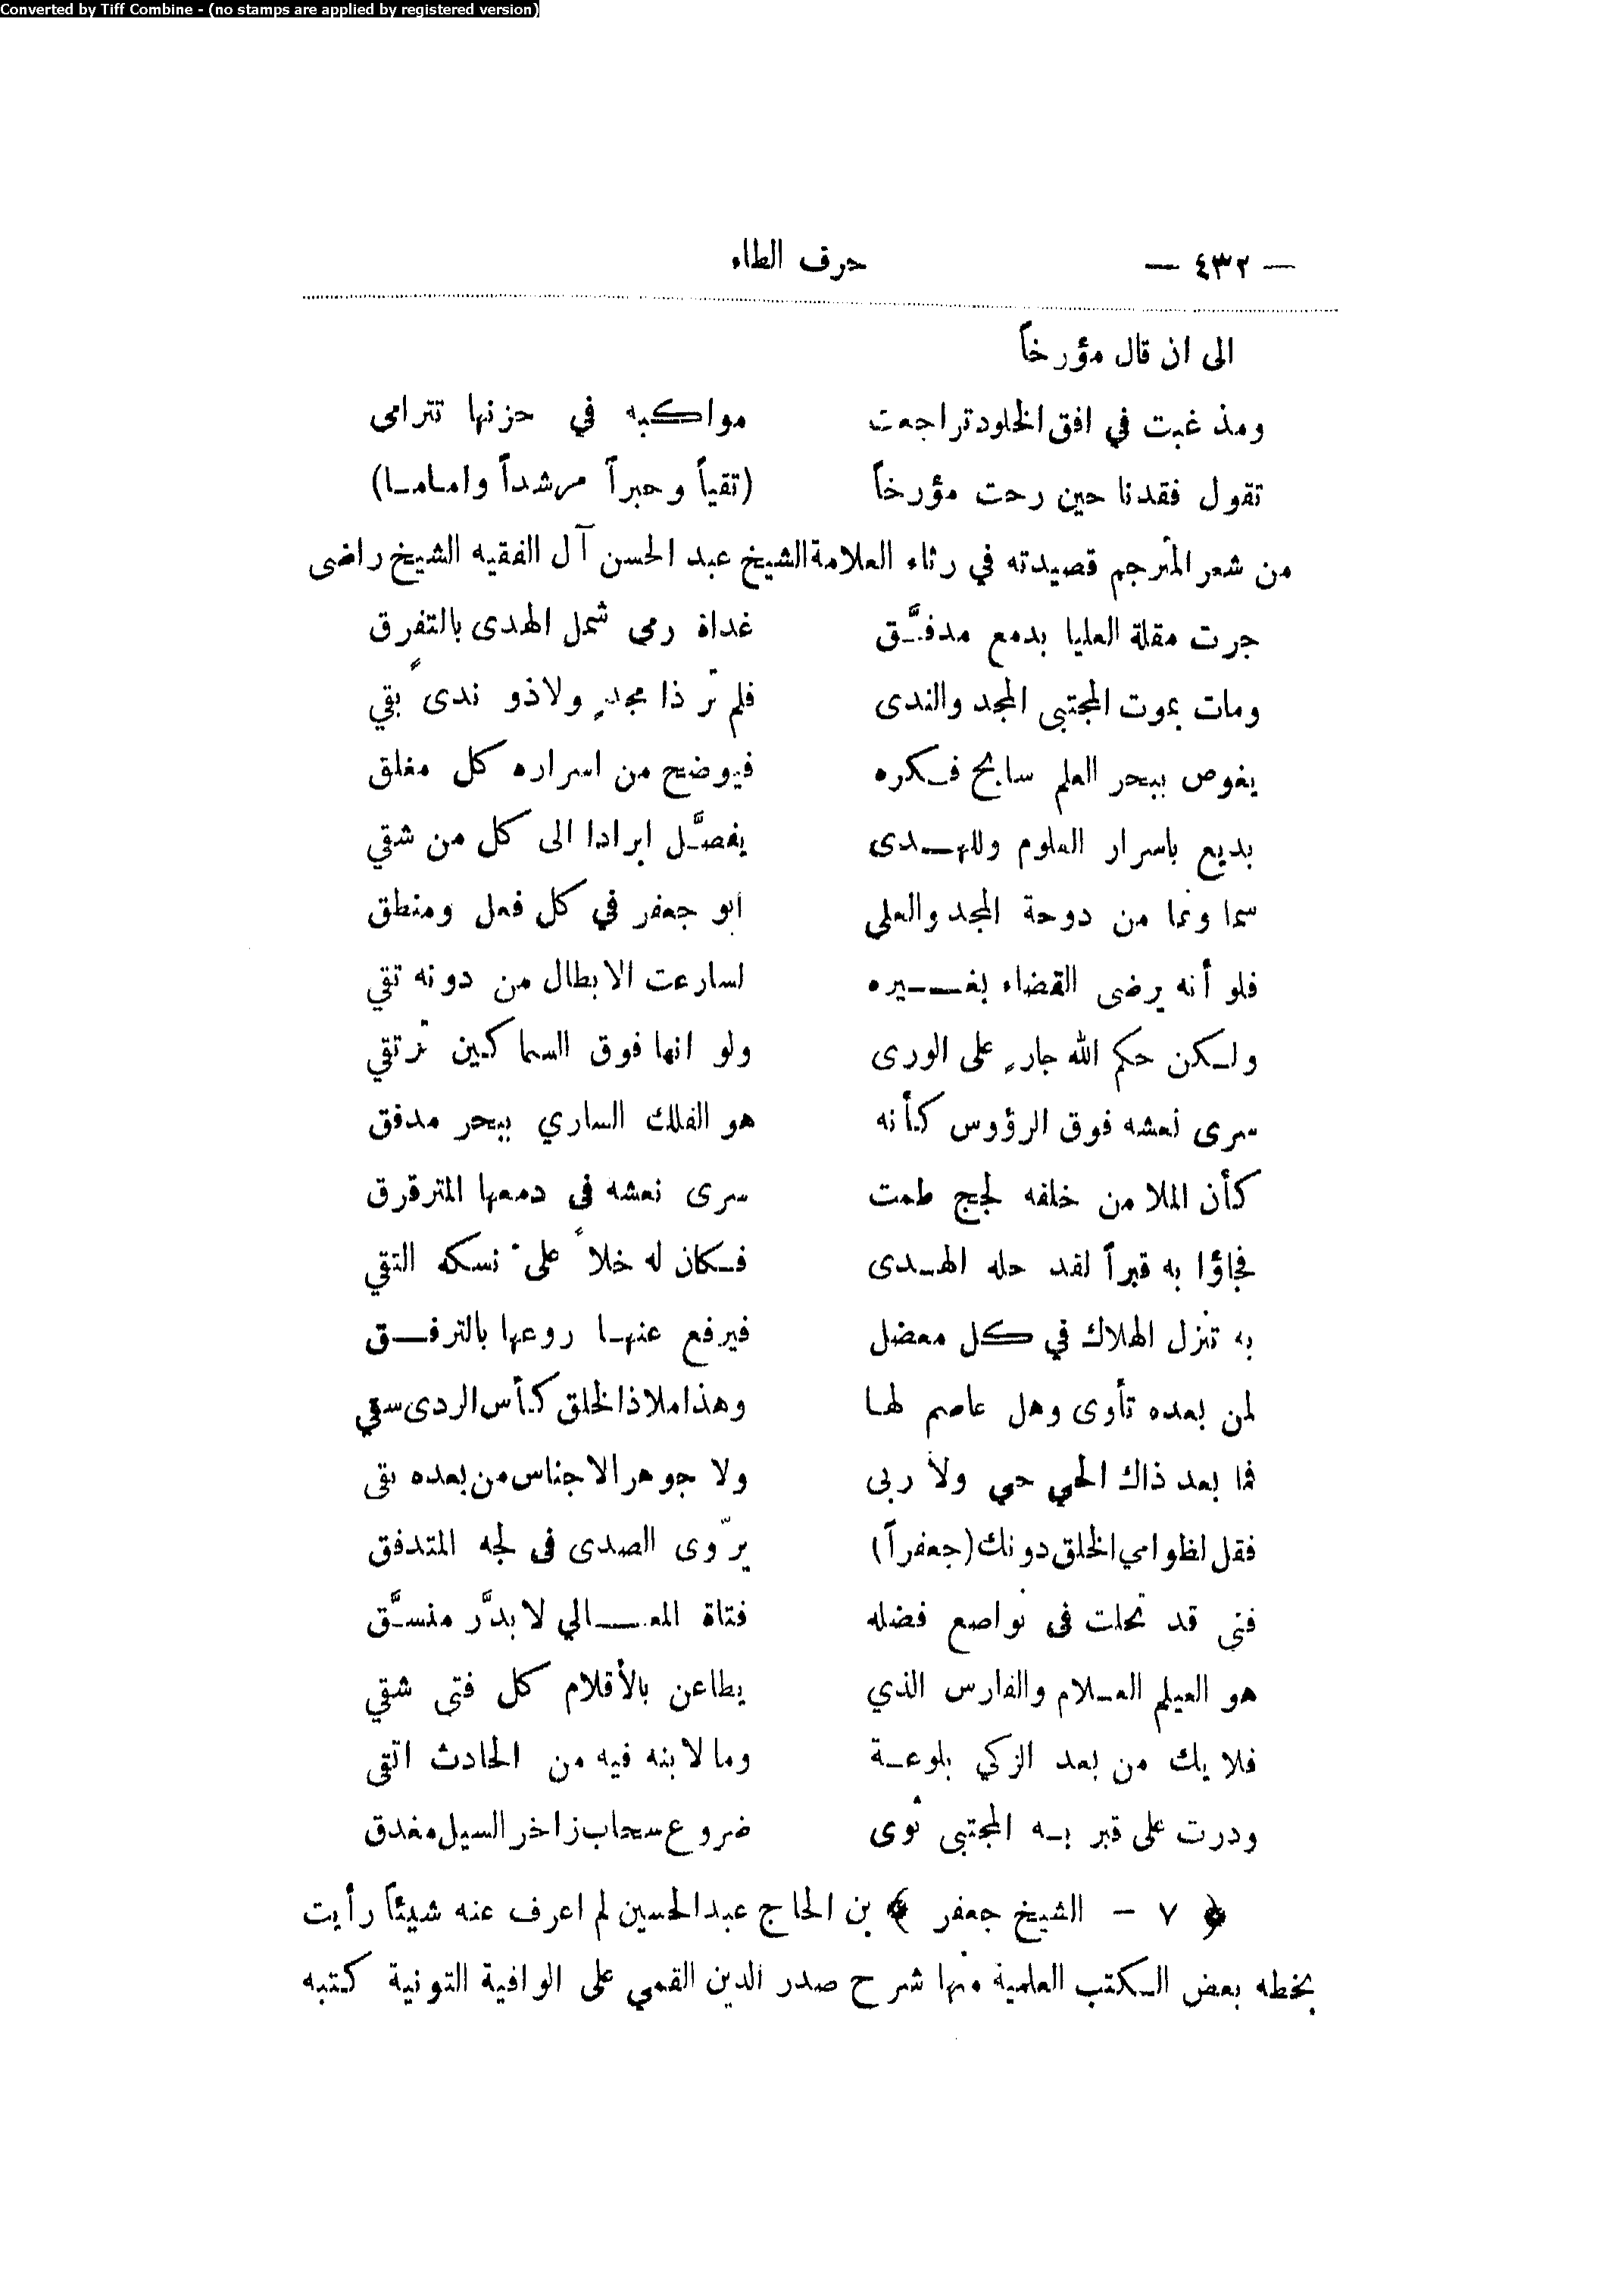 Converted by Tiff Combine - (no stamps are applied by registered version)
— ٤٣٢ — حرف الطاء
الى ان قال مؤرخاً
ومذ غبت في افق الخلود تراجعت مواكبه في حزنها تترامى
تقول فقدنا حين رحت مؤرخاً (تقياً وحبراً مرشداً واماما)
من شعر المترجم قصيدته في رثاء العلامة الشيخ عبد الحسن آل الفقيه الشيخ راضى
جرت مقلة العليا بدمع مدفَّق غداة رمى شمل الهدى بالتفرق
ومات بموت المجتبى المجد والندى فلم تر ذا مجدٍ ولا ذو ندىً بقي
يغوص ببحر العلم سابح فكره فيوضح من اسراره كل مغلق
بديع باسرار العلوم وللهدى يفصَّل ابرادا الى كل من شقي
سما ونما من دوحة المجد والعلى ابو جعفر في كل فعل ومنطق
فلو أنه يرضى القضاء بغيره لسارعت الابطال من دونه تقي
ولكن حكم الله جارٍ على الورى ولو انها فوق السماكين ترتقي
سرى نعشه فوق الرؤوس كأنه هو الفلك الساري ببحر مدفق
كأن الملا من خلفه لجج طمت سرى نعشه فى دمعها المترقرق
فجاؤا به قبراً لقد حله الهدى فكان له خلاً على نسكه التقي
به تنزل الهلاك في كل معضل فيرفع عنها روعها بالترفق
لمن بعده تأوى وهل عاصم لها وهذا ملاذ الخلق كأس الردى سقي
فما بعد ذاك الحي حي ولا ربى ولا جوهر الاجناس من بعده بقى
فقل لظوامي الخلق دونك (جعفراً) يرّوى الصدى فى لجه المتدفق
فتى قد تحلت فى نواصع فضله فتاة المعالي لا بدَّر منسَّق
هو العيلم العلام والفارس الذي يطاعن بالأقلام كل فتى شقي
فلا يك من بعد الزكي بلوعة وما لابنه فيه من الحادث اتقى
ودرت على قبر به المجتبى ثوى ضروع سحاب زاخر السيل مغدق
﴿ ٧ - الشيخ جعفر ﴾ بن الحاج عبد الحسين لم اعرف عنه شيئاً رأيت
بخطه بعض الكتب العلمية منها شرح صدر الدين القمي على الوافية التونية كتبه